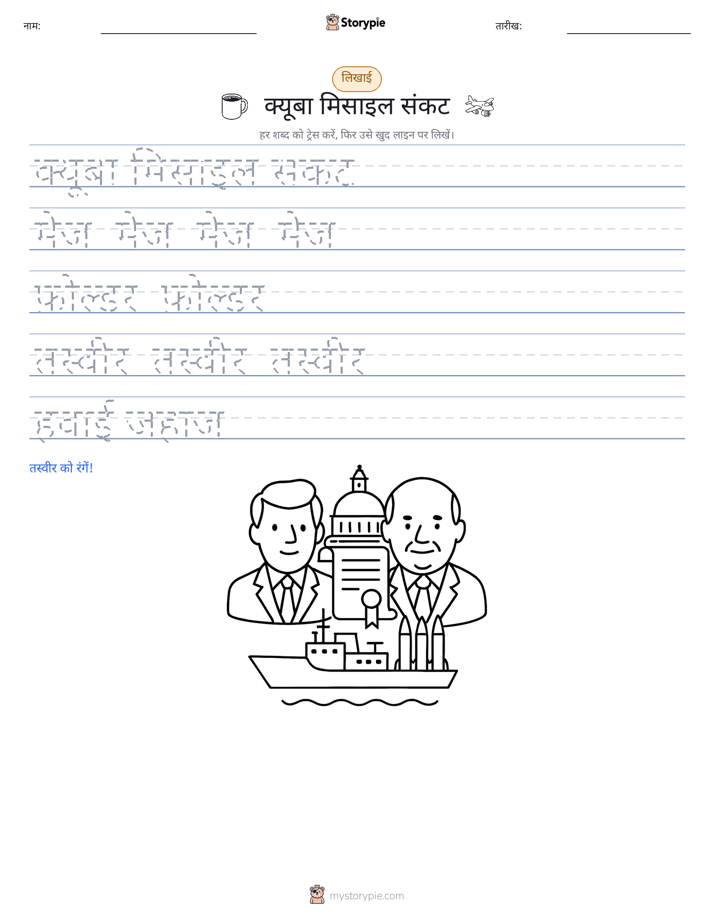 नाम:
Storypie
तारीख:
लिखाई
क्यूबा मिसाइल संकट
हर शब्द को ट्रेस करें, फिर उसे खुद लाइन पर लिखें।
क्यूबा मिसाइल संकट
मेज़ मेज़ मेज़ मेज़
फ़ोल्डर फ़ोल्डर
तस्वीर तस्वीर तस्वीर
हवाई जहाज़
तस्वीर को रंगें!
mystorypie.com